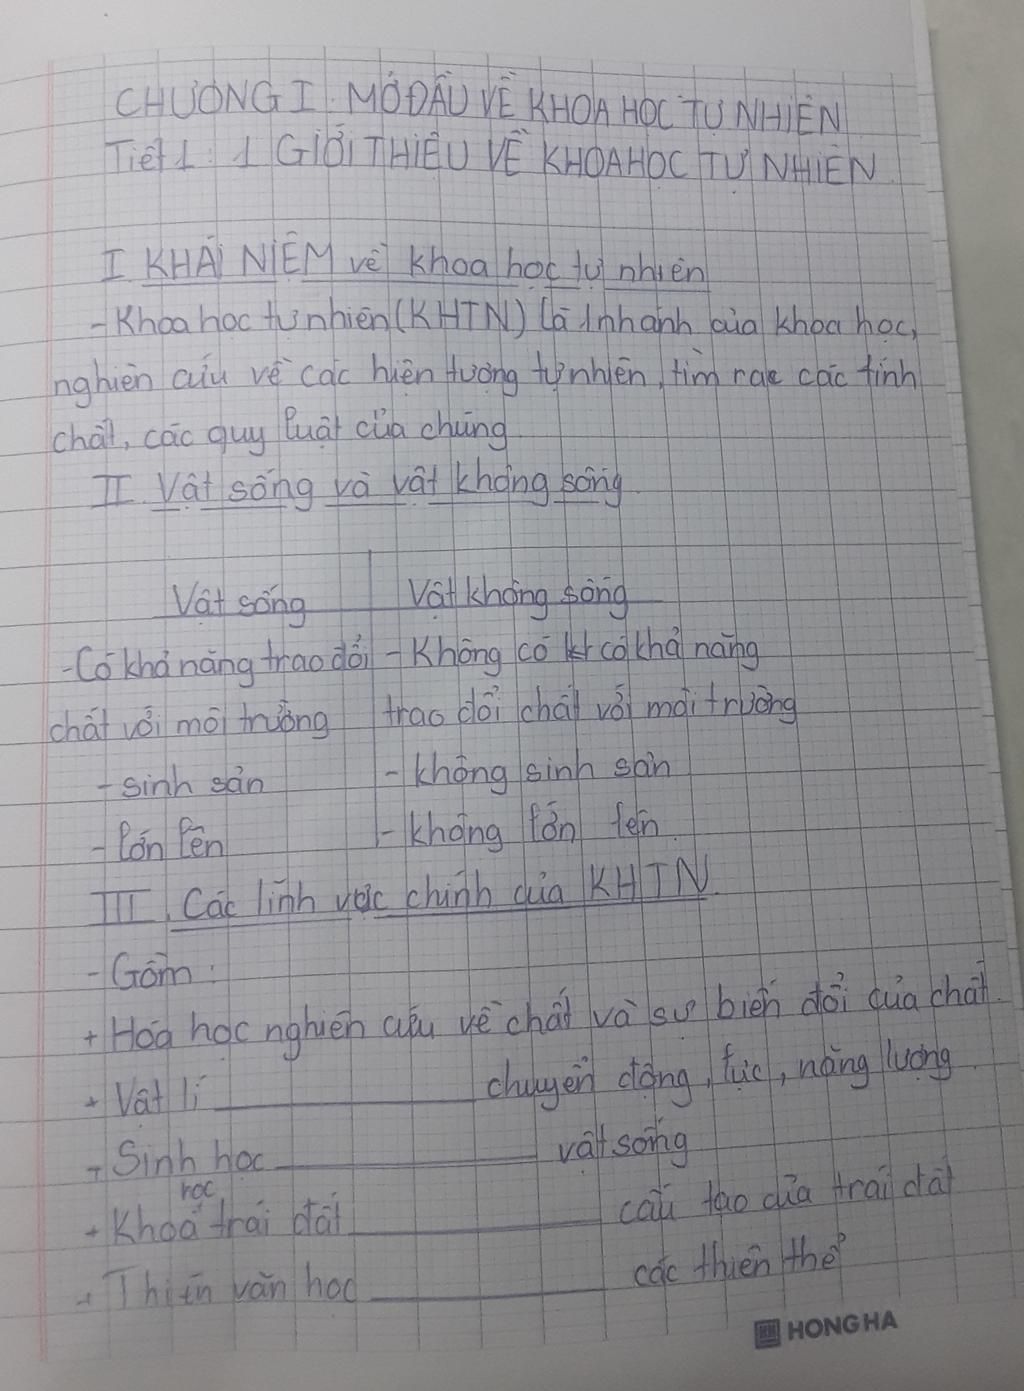 CHƯƠNG I. MỞ ĐẦU VỀ KHOA HỌC TỰ NHIÊN
Tiết 1: 1 GIỚI THIỆU VỀ KHOA HỌC TỰ NHIÊN
I KHÁI NIỆM về khoa học tự nhiên
- Khoa học tự nhiên (KHTN) là 1 nhánh của khoa học,
nghiên cứu về các hiện tượng tự nhiên, tìm ra các tính
chất, các quy luật của chúng
II Vật sống và vật không sống
Vật sống Vật không sống
- Có khả năng trao đổi - Không có có khả năng
chất với môi trường trao đổi chất với môi trường
- sinh sản - không sinh sản
- lớn lên - không lớn lên
III. Các lĩnh vực chính của KHTN
- Gồm:
+ Hóa học nghiên cứu về chất và sự biến đổi của chất.
+ Vật lí ________ chuyển động, lực, năng lượng
+ Sinh học ________ vật sống
+ Khoa học trái đất ________ cấu tạo của trái đất
+ Thiên văn học ________ các thiên thể
HONG HA